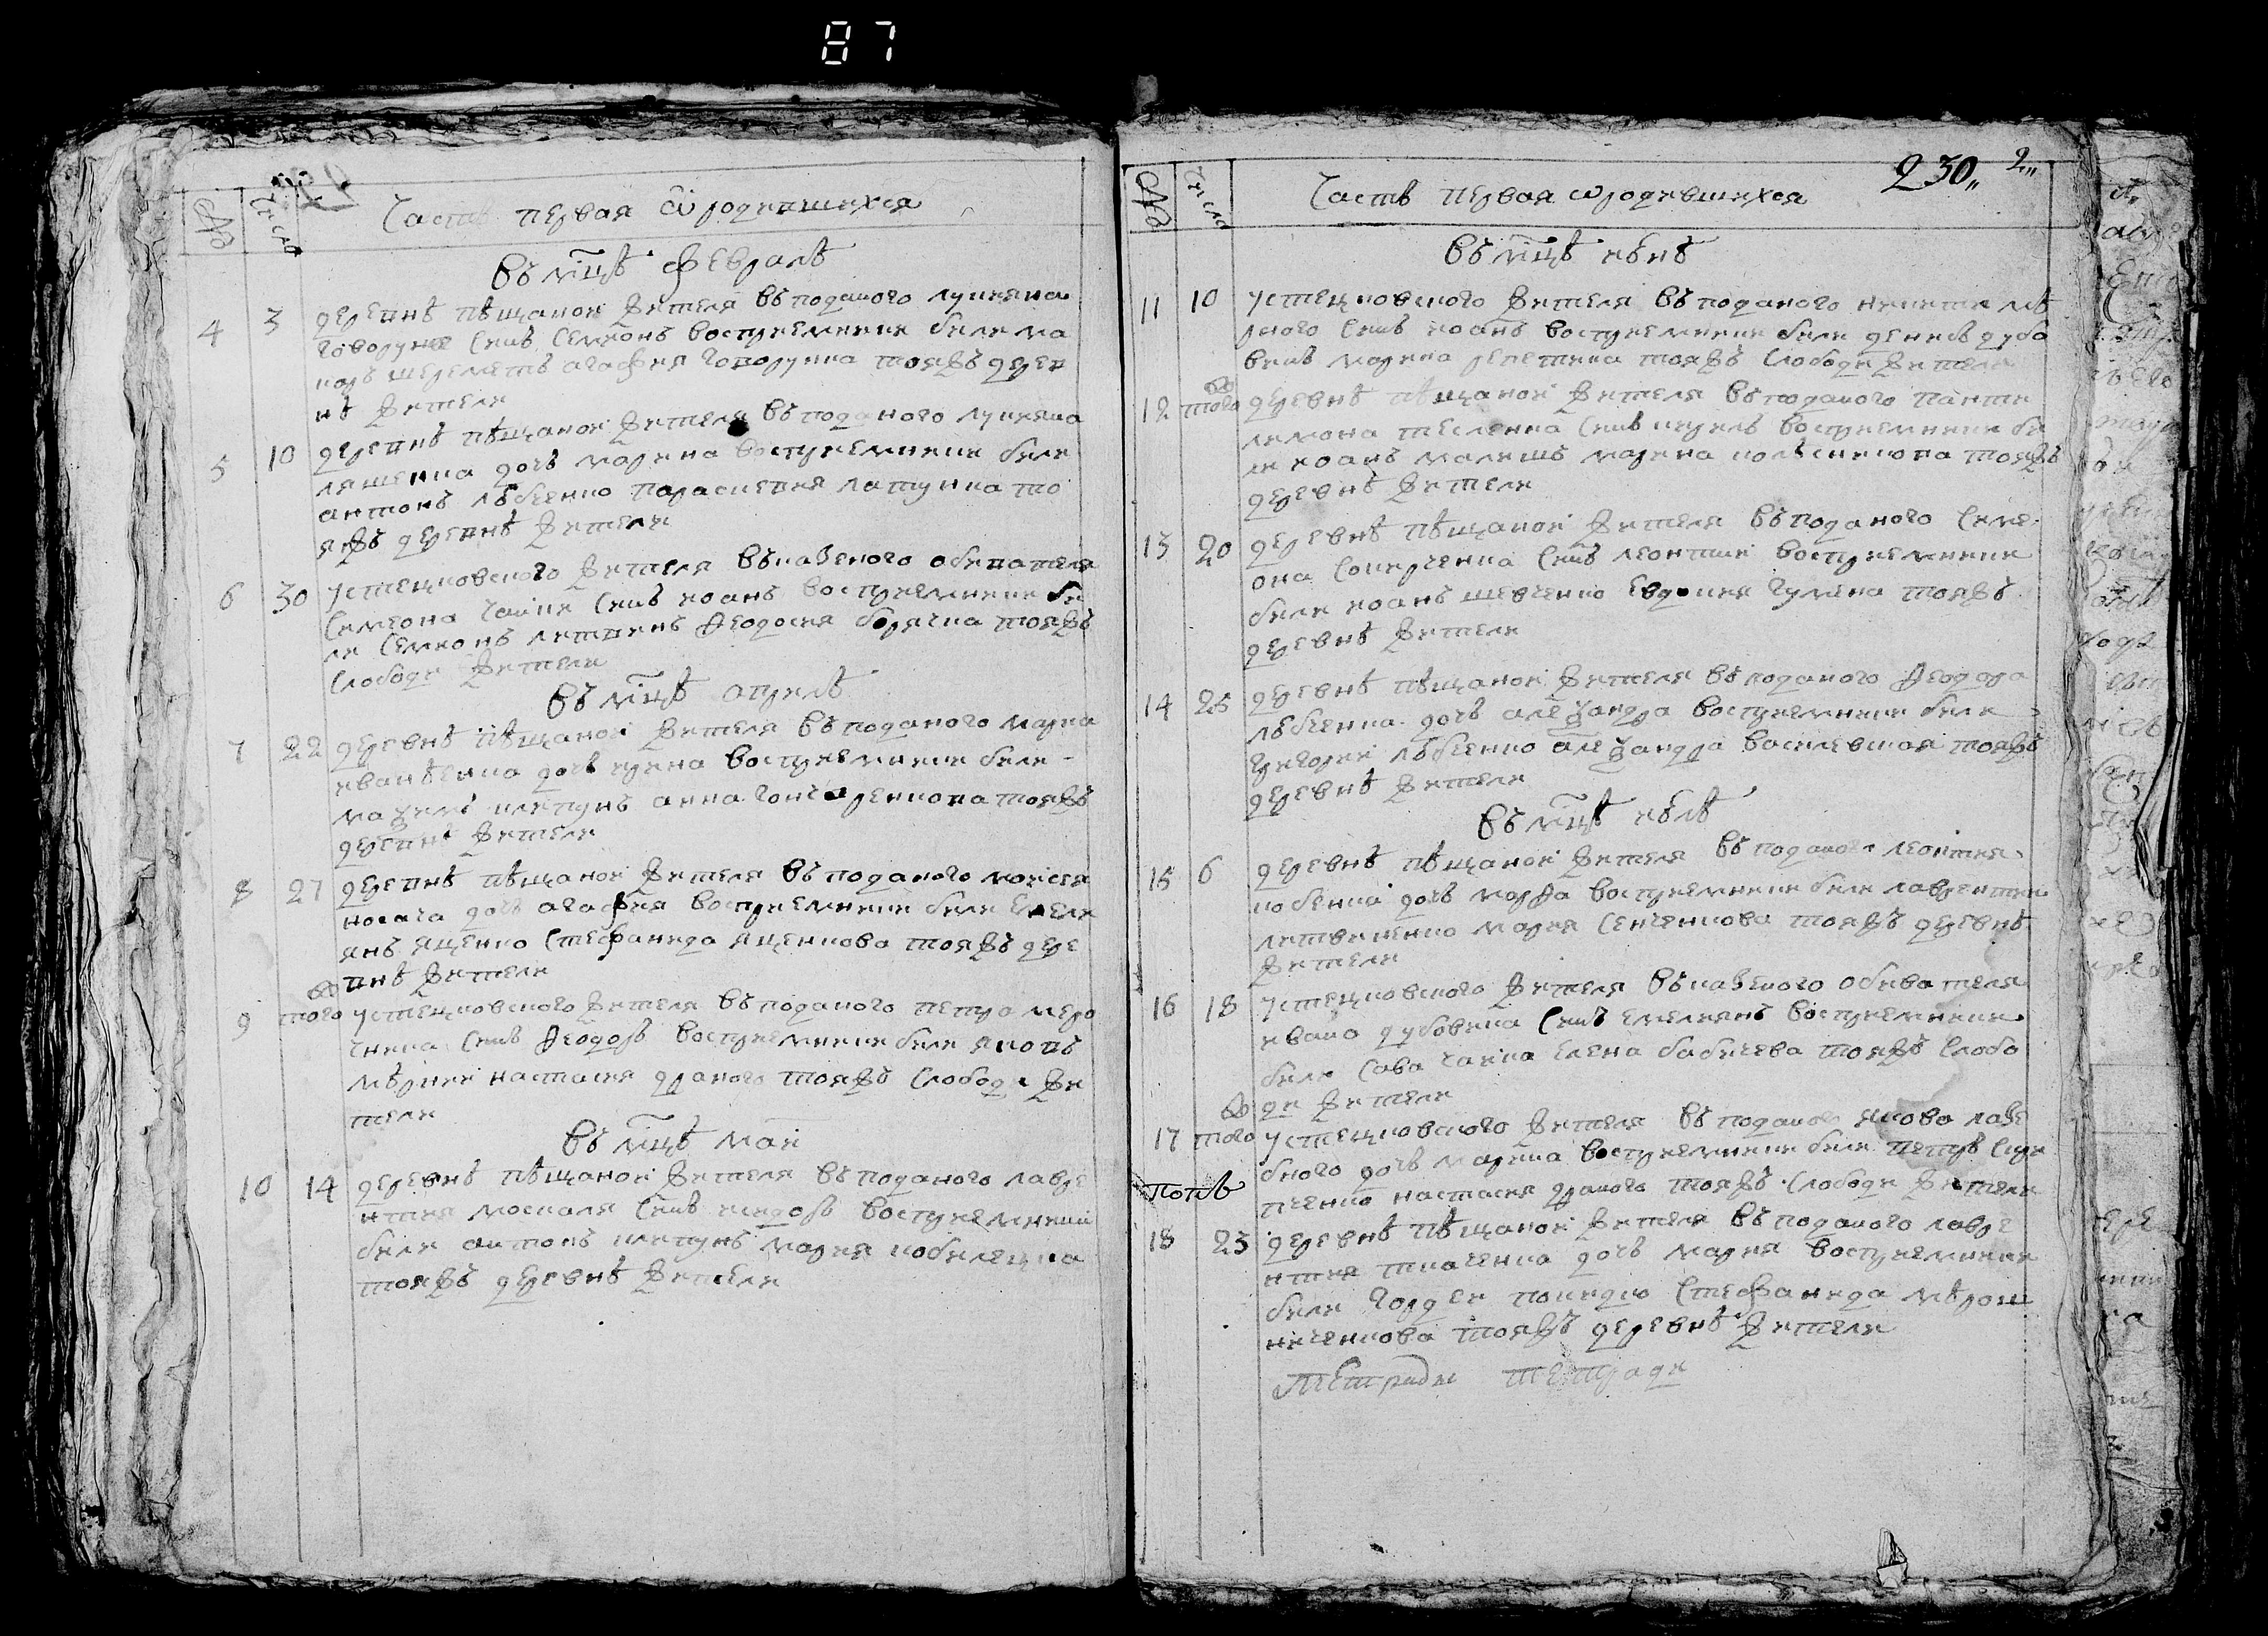 87
№ Число Часть первая ѡ родившихся
Въ мцѣ февралѣ
4 3 деревнѣ пѣщаной жителя въподаного лукияна
говоруна синъ семионъ восприемники били ма
каръ шереметъ агафия говоруниха тояжъ дерев
нѣ жители
5 10 деревнѣ пѣщаной жителя въподаного лукияна
ляшенка дочъ марина восприемники били
антонъ параскевия то
яжъ деревнѣ жители
6 30 устецковского жителя въказеного обивателя
симеона чайки синъ иоанъ восприемники би
ли семионъ литвинъ феодосия тояжъ
слободи жители
Въ мцѣ априлѣ
7 22 деревнѣ пѣщаной жителя въподаного марка
дочъ ирина восприемники били
маѯимъ клепунъ анна гончаренкова тояжъ
деревнѣ жители
8 27 деревнѣ пѣщаной жителя въподаного моисея
носача дочъ агафия восприемники били емели
янъ яценко стефанида яценкова тояжъ дере
внѣ жители
9 того устецковского жителя въподаного петра миро
шника синъ феодоръ восприемники били яковъ
мѣрний настасия драного тояжъ слободи жи
тели
Въ мцѣ маи
10 14 деревнѣ пѣщаной жителя въподаного лавре
нтия москаля синъ исидоръ восприемники
били антонъ клепунъ мария кобилецка
тояжъ деревнѣ жители
230 2
№ Число Часть первая ѡ родившихся
Въ мцѣ июнѣ
11 10 устецковского жителя въподаного никити мѣ
рного синъ иоанъ восприемники били денисъ дубо
викъ марина репетина тояжъ слободи жители
12 того деревнѣ пѣщаной жителя въподаного панте
леимона тесленка синъ кирилъ восприемники би
ли иоанъ малишъ марина колѣсникова тояжъ
деревнѣ жители
13 20 деревнѣ пѣщаной жителя въподаного симе
она синъ леонтий восприемники
били иоанъ шевченко евдокия тояжъ
деревнѣ жители
14 25 деревнѣ пѣщаной жителя въподаного феодора
дочъ алеѯандра восприемники били
григорий алеѯандра василевская тояжъ
деревнѣ жители
Въ мцѣ июлѣ
15 6 деревнѣ пѣщаной жителя въподаного леонтия
дочъ марфа восприемники били лаврентий
литвиненко мария сенченкова тояжъ деревнѣ
жители
16 18 устецковского жителя въказеного обивателя
ивана дубовика синъ емелиянъ восприемники
били сава чайка елена бабичева тояжъ слобо
ди жители
17 того устецковского жителя въподаного якова лазе
бного дочъ марина восприемники били петръ скри
пченко настасия драного тояжъ слободи жители
попъ
18 23 деревнѣ пѣщаной жителя въподаного лавре
нтия ткаченка дочъ мария восприемники
били гордей покидко стефанида мѣрош
ниченкова тояжъ деревнѣ жители
тетради тетради